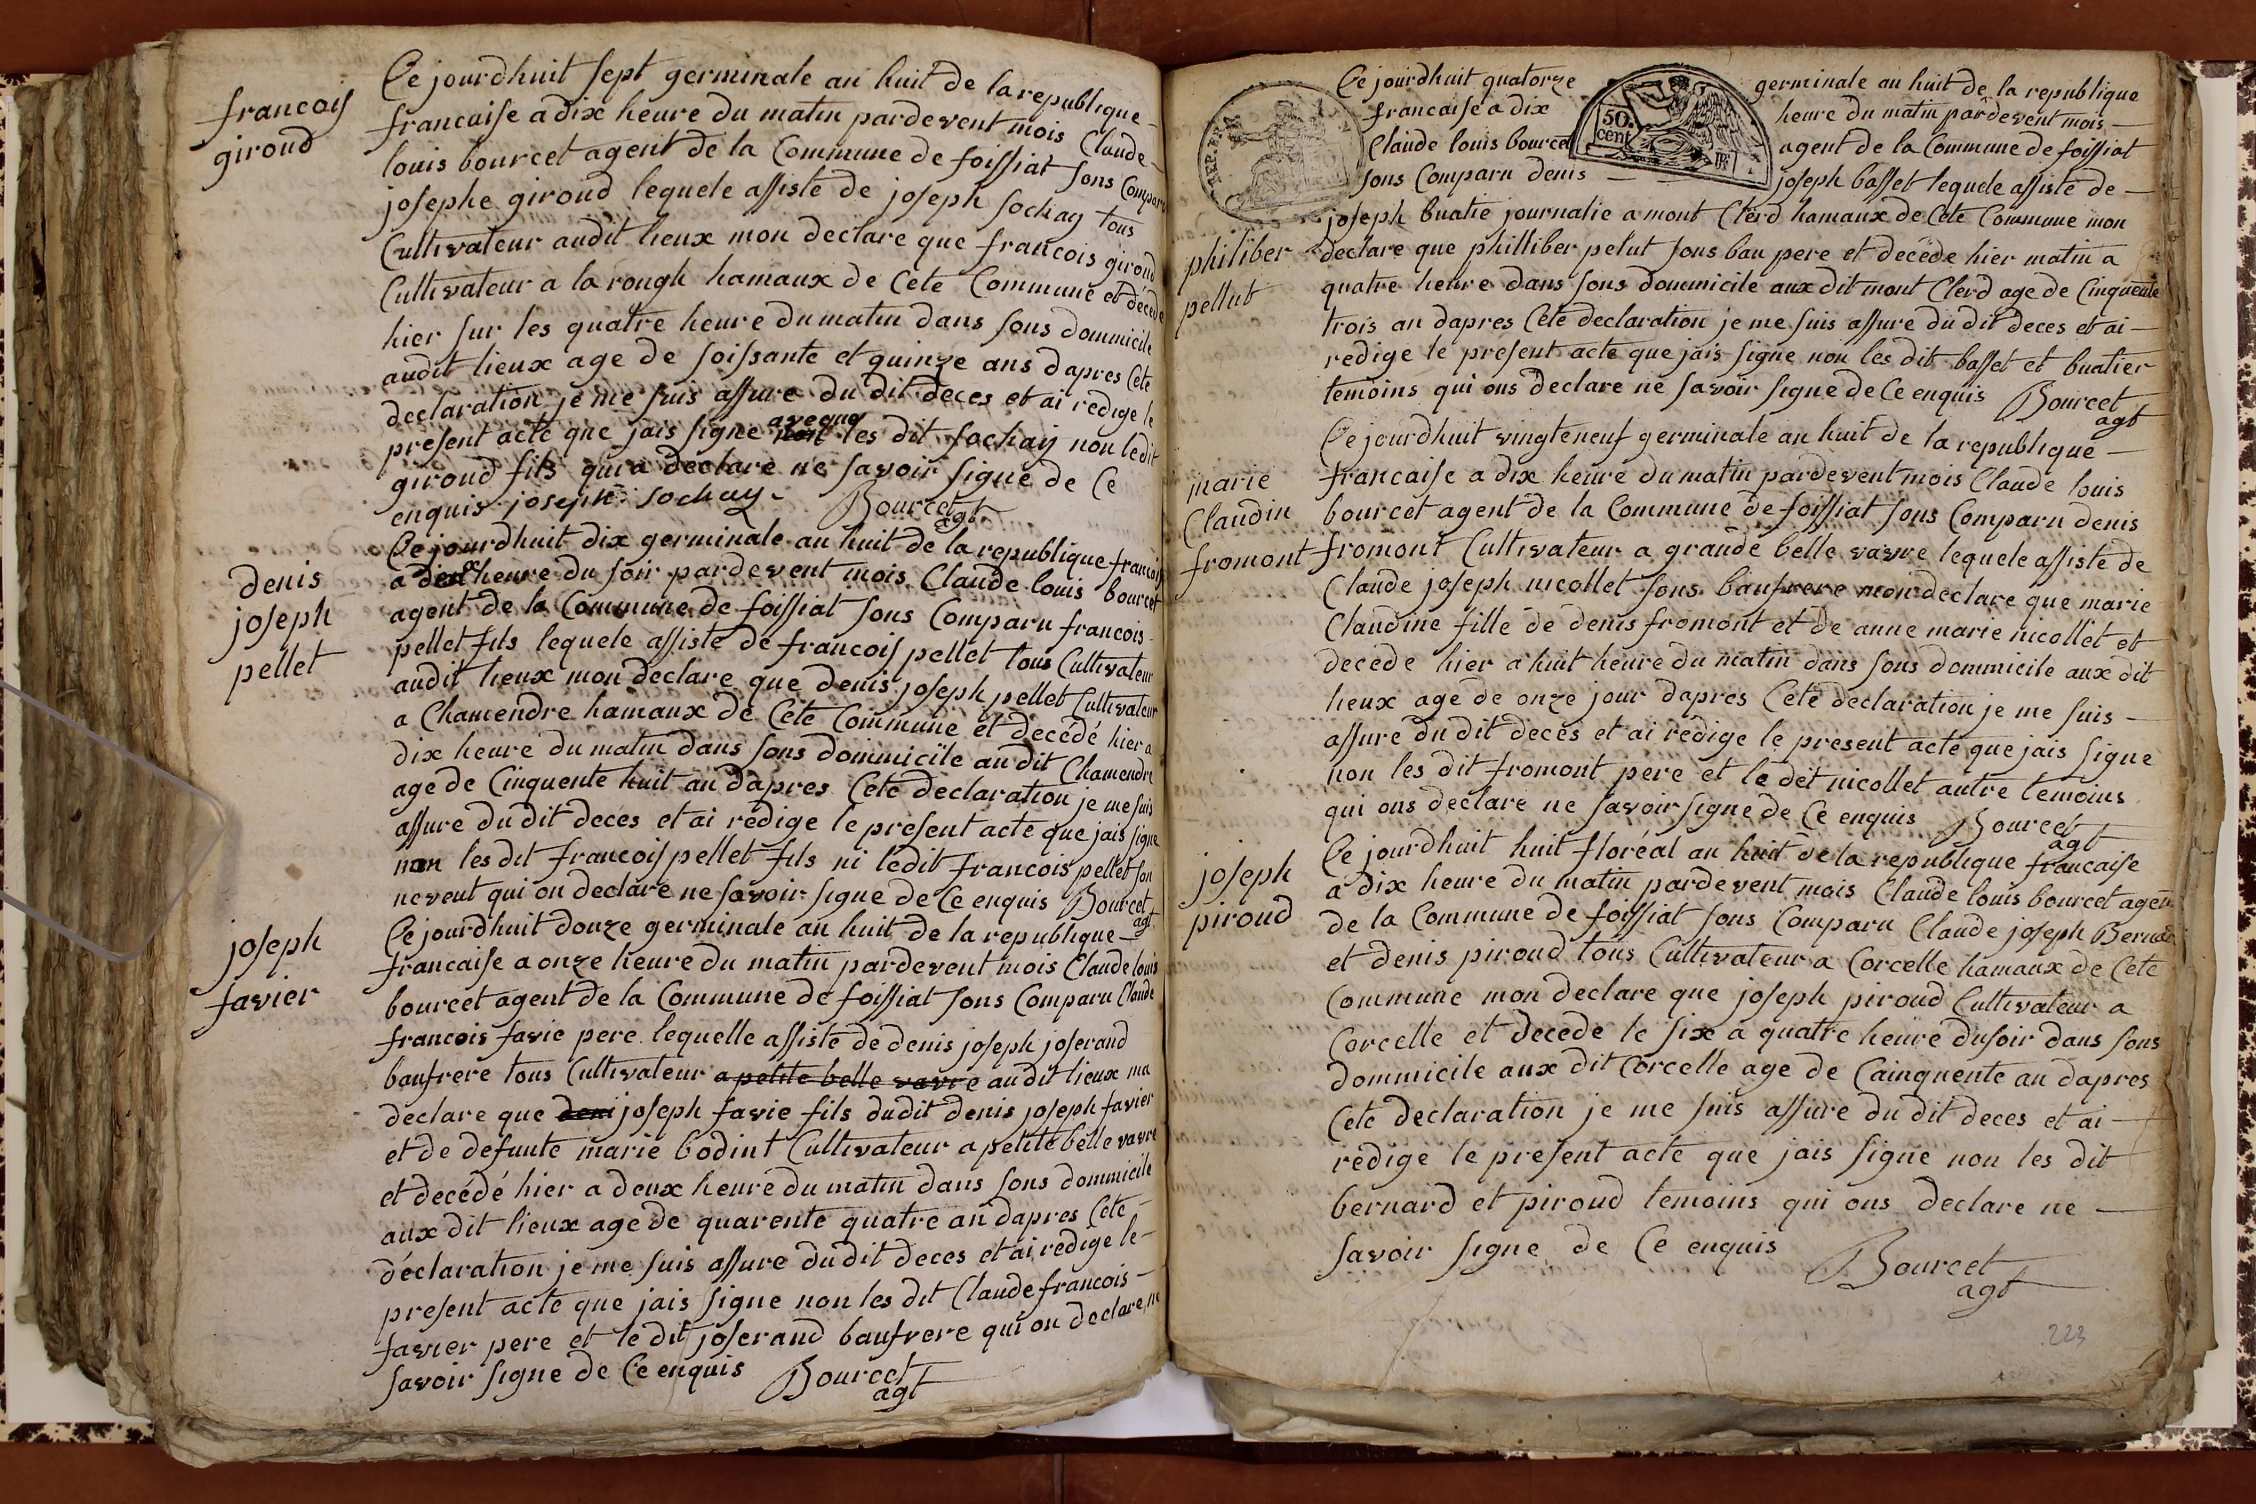 francois
giroud
Ce jourdhuit sept germinale an huit de la republique
francaise a dix heure du matin pardevent mois Claude
louis bourcet agent de la Commune de foissiat sons Comparu
josephe giroud lequele assiste de joseph sochay tous
Cultivateur audit lieux mon declare que francois giroud
Cultivateur a la rongh hamaux de Cete Commune et décede
hier sur les quatre heure du matin dans sons dommicile
audit lieux age de soissante et quinze ans dapres Cete
declaration je me suis assure du dit deces et ai redige le
present acte que jais signe avecque les dit sochay non ledit
giroud fils qui a declare ne savoir signe de Ce
enquis joseph sochay Bourcet
agt
denis
joseph
pellet
Ce jourdhuit dix germinale an huit de la republique francois
a deux heure du soir pardevent mois Claude louis bourcet
agent de la Commune de foissiat sons Comparu francois
pellet fils lequele assiste de francois pellet tous Cultivateur
audit lieux mon declare que denis joseph pellet Cultivateur
a Chamendre hamaux de Cete Commune et decédé hier a
dix heure du matin dans sons dommicile au dit Chamendre
age de Cinquente huit an dapres Cete declaration je me suis
assure du dit deces et ai redige le present acte que jais signe
non les dit francois pellet fils ni ledit francois pellet son
nevent qui on declare ne savoir signe de Ce enquis Bourcet
agt
joseph
favier
Ce jourdhuit douze germinale an huit de la republique
francaise a onze heure du matin pardevent mois Claude louis
bourcet agent de la Commune de foissiat sons Comparu Claude
francois favie pere lequelle assiste de denis joseph joserand
baufrere tous Cultivateur a petite belle vavre au dit lieux ma
declare que deni joseph favie fils dudit denis joseph favier
et de defunte marie bodint Cultivateur a petite belle vavre
et decédé hier a deux heure du matin dans sons dommicile
aux dit lieux age de quarente quatre an dapres Cete
déclaration je me suis assure du dit deces et ai redige le
present acte que jais signe non les dit Claude francois
favier pere et le dit joserand baufrere qui on declare ne
savoir signe de Ce enquis Bourcet
agt
REP. FRA
50.
cent
Ce jourdhuit quatorze germinale an huit de la republique
francaise a dix heure du matin pardevent mois
Claude louis bourcet agent de la Commune de foissiat
sons Comparu denis joseph basset lequele assiste de
philiber
pellut
joseph buatie journalie a mont Clerd hamaux de Cete Commune mon
declare que philliber pelut sons bau pere et decéde hier matin a
quatre heure dans sons dommicile aux dit mont Clerd age de Cinquente
trois an dapres Cete declaration je me suis assure du dit deces et ai
redige le present acte que jais signe non les dit basset et buatier
temoins qui ons declare ne savoir signe de Ce enquis Bourcet
agt
marie
Claudin
fromont
Ce jourdhuit vingteneuf germinale an huit de la republique
francaise a dix heure du matin pardevent mois Claude louis
bourcet agent de la Commune de foissiat sons Comparu denis
fromont Cultivateur a grande belle vavre lequele assiste de
Claude joseph nicollet sons baufrere mon declare que marie
Claudine fille de denis fromont et de anne marie nicollet et
decede hier a huit heure du matin dans sons dommicile aux dit
lieux age de onze jour dapres Cete declaration je me suis
assure du dit deces et ai redige le present acte que jais signe
non les dit fromont pere et le dit nicollet autre temoins
qui ons declare ne savoir signe de Ce enquis Bourcet
agt
joseph
piroud
Ce jourdhuit huit floréal an huit de la republique francaise
a dix heure du matin pardevent mois Claude louis bourcet agen
de la Commune de foissiat sons Comparu Claude joseph Bernard
et denis piroud tous Cultivateur a Corcelle hamaux de Cete
Commune mon declare que joseph piroud Cultivateur a
Corcelle et decede le six a quatre heure du soir dans sons
dommicile aux dit Corcelle age de Cainquente an dapres
Cete declaration je me suis assure du dit deces et ai
redige le present acte que jais signe non les dit
bernard et piroud temoins qui ons declare ne
savoir signe de Ce enquis Bourcet
agt
223